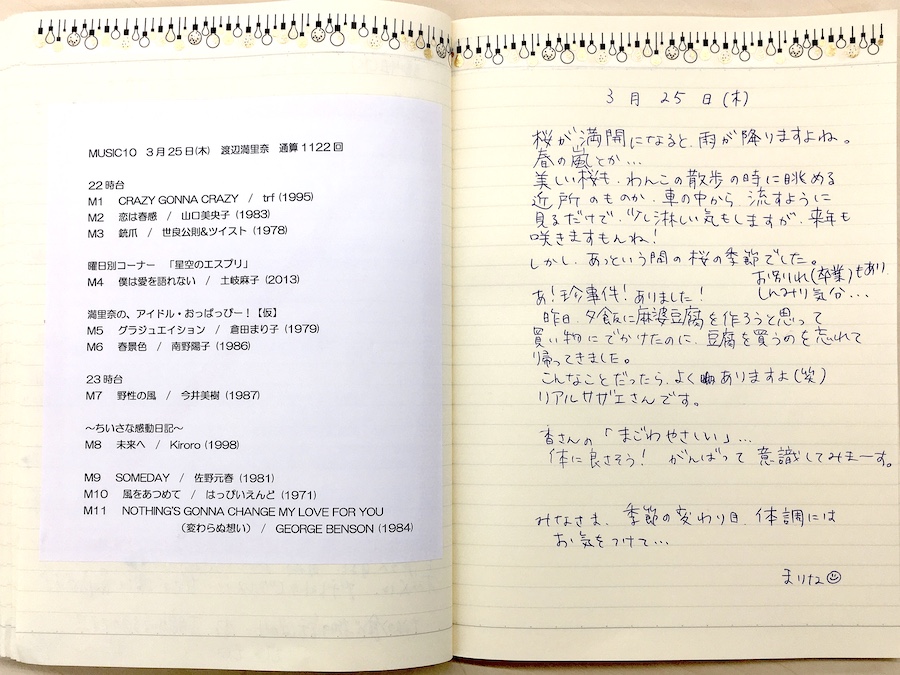 MUSIC10 3月25日(木) 渡辺満里奈 通算1122回
22時台
M1 CRAZY GONNA CRAZY / trf (1995)
M2 恋は春感 / 山口美央子 (1983)
M3 銃爪 / 世良公則&ツイスト (1978)
曜日別コーナー 「星空のエスプリ」
M4 僕は愛を語れない / 土岐麻子 (2013)
満里奈の、アイドル・おっぱっぴー!【仮】
M5 グラジュエイション / 倉田まり子 (1979)
M6 春景色 / 南野陽子 (1986)
23時台
M7 野性の風 / 今井美樹 (1987)
～ちいさな感動日記～
M8 未来へ / Kiroro (1998)
M9 SOMEDAY / 佐野元春 (1981)
M10 風をあつめて / はっぴいえんど (1971)
M11 NOTHING'S GONNA CHANGE MY LOVE FOR YOU
(変わらぬ想い) / GEORGE BENSON (1984)
3月25日(木)
桜が満開になると、雨が降りますよね。
春の嵐とか...
美しい桜も、わんこの散歩の時に眺める
近所のものか、車の中から、流すように
見るだけで、少し淋しい気もしますが、来年も
咲きますもんね!
しかし、あっという間の桜の季節でした。
お別れ(卒業)もあり
しんみり気分...
あ!珍事件!ありました!
昨日、夕飯に麻婆豆腐を作ろうと思って
買い物にでかけたのに、豆腐を買うのを忘れて
帰ってきました。
こんなことだったら、よくありますよ(笑)
リアルサザエさんです。
香さんの「まごわやさしい」...
体に良さそう! がんばって意識してみまーす。
みなさま、季節の変わり目、体調には
お気をつけて...
まりな